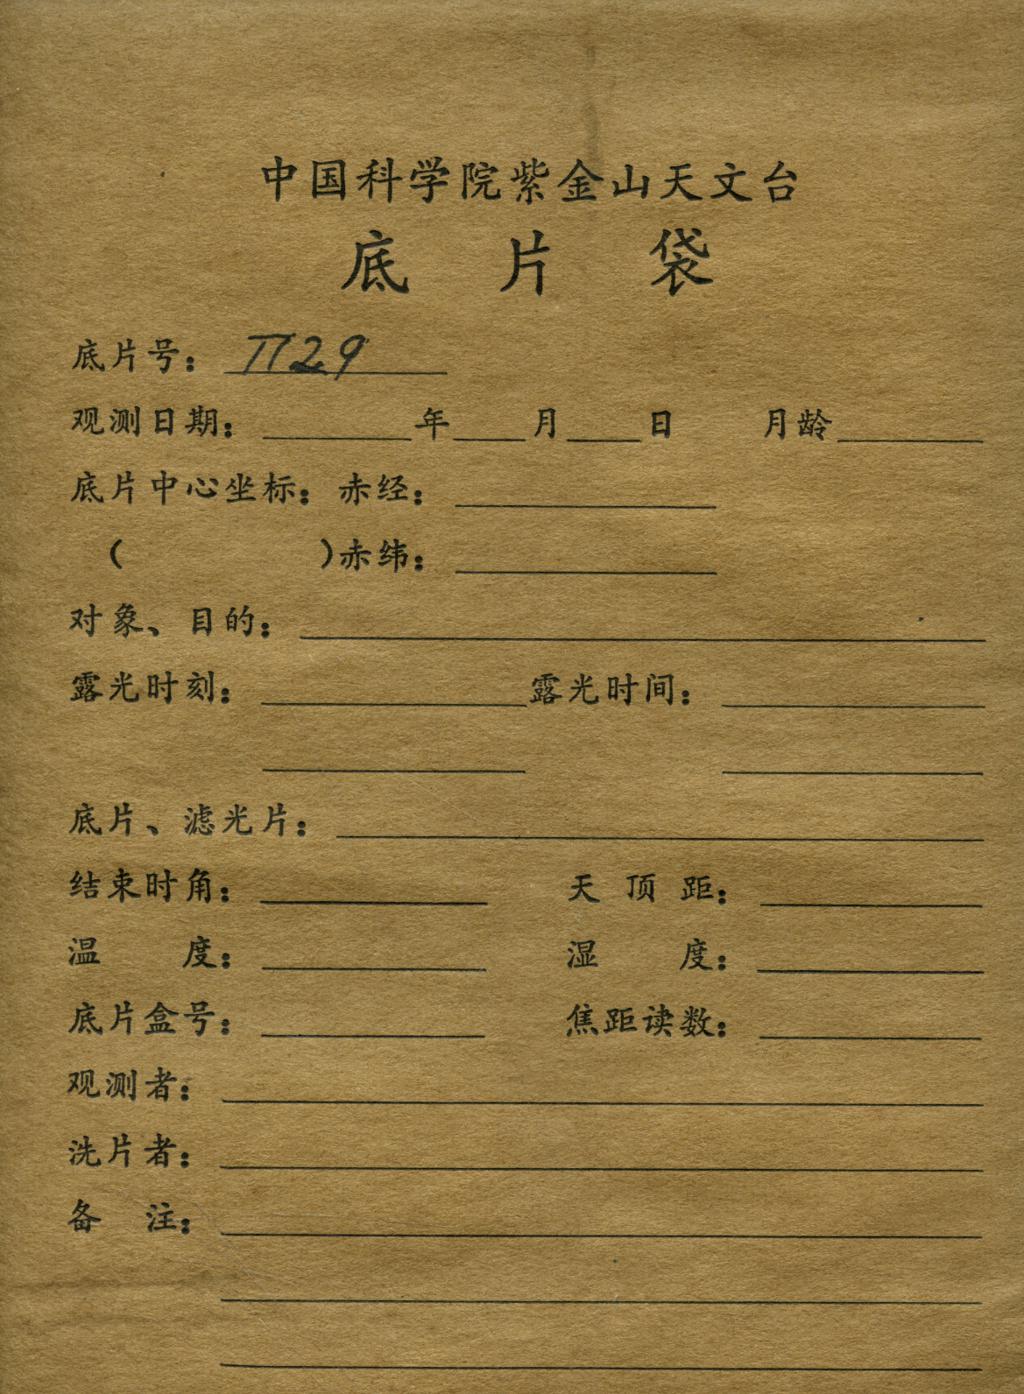 中国科学院紫金山天文台
底片袋
底片号：П29
观测日期：年月日 月龄
底片中心坐标：赤经：
（ ）赤纬：
对象、目的：
露光时刻： 露光时间：
底片、滤光片：
结束时角： 天顶距：
温度： 湿度：
底片盒号： 焦距读数：
观测者：
洗片者：
备注：